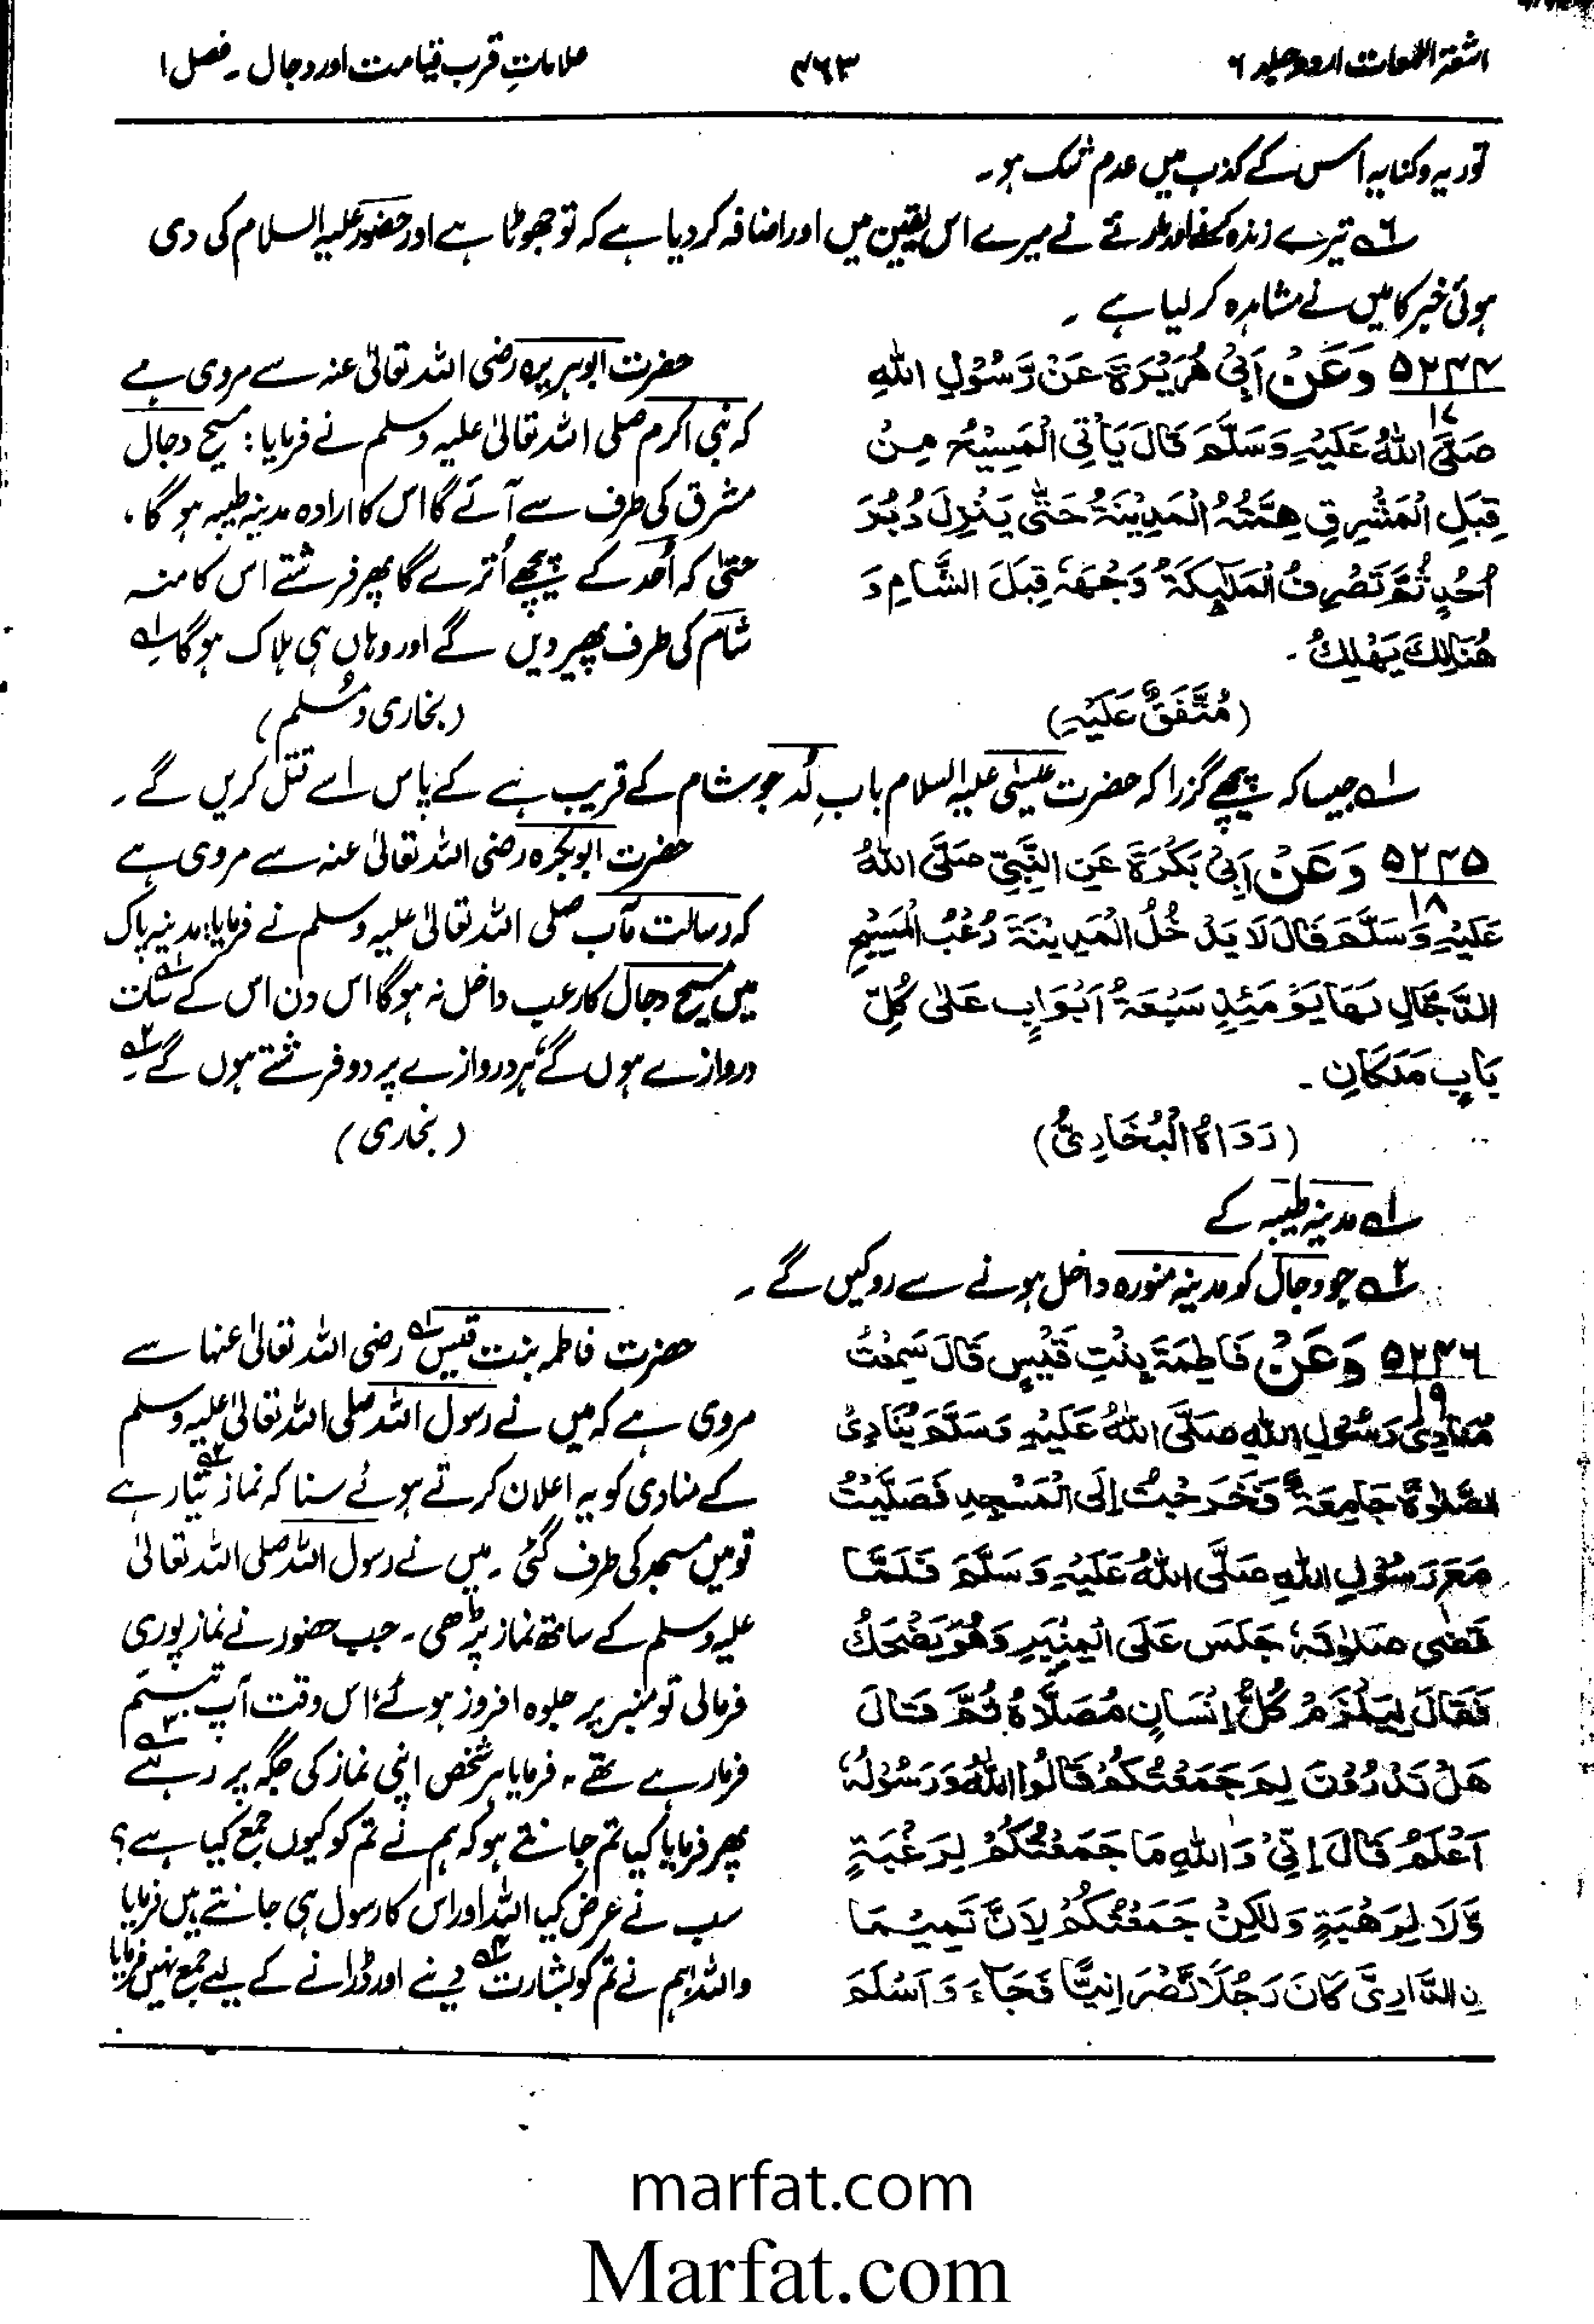 اشعۃ اللمعات اردو جلد ۶
۴۶۳
علاماتِ قربِ قیامت اور دجال ۔ فصل ۱
توریہ و کنایہ اس کے کذب میں عدم شک ہو۔
۶ تیرے زندہ کرنے اور مارنے نے میرے اس یقین میں اور اضافہ کر دیا ہے کہ تو جھوٹا ہے اور حضور علیہ السلام کی دی
ہوئی خبر کا میں نے مشاہدہ کر لیا ہے ۔
۵۲۴۴ وَعَنْ اَبِیْ ھُرَیْرَۃَ عَنْ رَّسُوْلِ اللّٰہِ
۱۷
صَلَّی اللّٰہُ عَلَیْہِ وَسَلَّمَ قَالَ یَأْتِی الْمَسِیْحُ مِنْ
قِبَلِ الْمَشْرِقِ ھِمَّتُہُ الْمَدِیْنَۃُ حَتّٰی یَنْزِلَ دُبُرَ
اُحُدٍ ثُمَّ تَصْرِفُ الْمَلٰٓئِکَۃُ وَجْھَہٗ قِبَلَ الشَّامِ وَ
ھُنَالِکَ یَھْلِکُ ۔
(مُتَّفَقٌ عَلَیْہِ)
حضرت ابوہریرہ رضی اللہ تعالیٰ عنہ سے مروی ہے
کہ نبی اکرم صلی اللہ تعالیٰ علیہ وسلم نے فرمایا: مسیح دجال
مشرق کی طرف سے آئے گا اس کا ارادہ مدینہ طیبہ ہو گا ،
حتیٰ کہ اُحد کے پیچھے اُترے گا پھر فرشتے اس کا منہ
شام کی طرف پھیر دیں گے اور وہاں ہی ہلاک ہو گا ۱؎
(بخاری و مُسلم)
۱؎ جیسا کہ پیچھے گزرا کہ حضرت عیسٰی علیہ السلام بابِ لُد جو شام کے قریب ہے کے پاس اسے قتل کریں گے ۔
۵۲۴۵ وَعَنْ اَبِیْ بَکْرَۃَ عَنِ النَّبِیِّ صَلَّی اللّٰہُ
۱۸
عَلَیْہِ وَسَلَّمَ قَالَ لَا یَدْخُلُ الْمَدِیْنَۃَ رُعْبُ الْمَسِیْحِ
الدَّجَّالِ لَھَا یَوْمَئِذٍ سَبْعَۃُ اَبْوَابٍ عَلٰی کُلِّ
بَابٍ مَلَکَانِ ۔
(رَوَاہُ الْبُخَارِیُّ)
حضرت ابوبکرہ رضی اللہ تعالیٰ عنہ سے مروی ہے
کہ رسالت مآب صلی اللہ تعالیٰ علیہ وسلم نے فرمایا: مدینہ پاک
میں مسیح دجال کا رعب داخل نہ ہو گا اس دن اس کے ۱؎ سات
دروازے ہوں گے، ہر دروازے پر دو فرشتے ہوں گے ۲؎ ۔
(بخاری)
۱؎ مدینہ طیبہ کے
۲؎ جو دجال کو مدینہ منورہ داخل ہونے سے روکیں گے ۔
۵۲۴۶ وَعَنْ فَاطِمَۃَ بِنْتِ قَیْسٍ قَالَ سَمِعْتُ
۱۹
مُنَادِیَ رَسُوْلِ اللّٰہِ صَلَّی اللّٰہُ عَلَیْہِ وَسَلَّمَ یُنَادِیْ
الصَّلٰوۃُ جَامِعَۃٌ فَخَرَجْتُ اِلَی الْمَسْجِدِ فَصَلَّیْتُ
مَعَ رَسُوْلِ اللّٰہِ صَلَّی اللّٰہُ عَلَیْہِ وَسَلَّمَ فَلَمَّا
قَضٰی صَلٰوتَہٗ جَلَسَ عَلَی الْمِنْبَرِ وَھُوَ یَضْحَکُ
فَقَالَ لِیَلْزَمْ کُلُّ اِنْسَانٍ مُصَلَّاہُ ثُمَّ قَالَ
ھَلْ تَدْرُوْنَ لِمَ جَمَعْتُکُمْ قَالُوا اللّٰہُ وَرَسُوْلُہٗ
اَعْلَمُ قَالَ اِنِّیْ وَاللّٰہِ مَا جَمَعْتُکُمْ لِرَغْبَۃٍ
وَّلَا لِرَھْبَۃٍ وَلٰکِنْ جَمَعْتُکُمْ لِاَنَّ تَمِیْمًا
نِ الدَّارِیَّ کَانَ رَجُلًا نَّصْرَانِیًّا فَجَآءَ وَاَسْلَمَ
حضرت فاطمہ بنت قیس ۱؎ رضی اللہ تعالیٰ عنہا سے
مروی ہے کہ میں نے رسول اللہ صلی اللہ تعالیٰ علیہ وسلم
کے منادی کو یہ اعلان کرتے ہوئے سنا کہ نماز ۲؎ تیار ہے
تو میں مسجد کی طرف گئی ۔ میں نے رسول اللہ صلی اللہ تعالیٰ
علیہ وسلم کے ساتھ نماز پڑھی ۔ جب حضور نے نماز پوری
فرمالی تو منبر پر جلوہ افروز ہوئے، اس وقت آپ تبسم
فرمارہے تھے ۔ فرمایا ہر شخص اپنی نماز کی جگہ پر رہے ۳؎
پھر فرمایا کیا تم جانتے ہو کہ ہم نے تم کو کیوں جمع کیا ہے؟
سب نے عرض کیا اللہ اور اس کا رسول ہی جانتے ہیں فرمایا
واللہ! ہم نے تم کو بشارت ۴؎ دینے اور ڈرانے کے لیے جمع نہیں فرمایا
marfat.com
Marfat.com